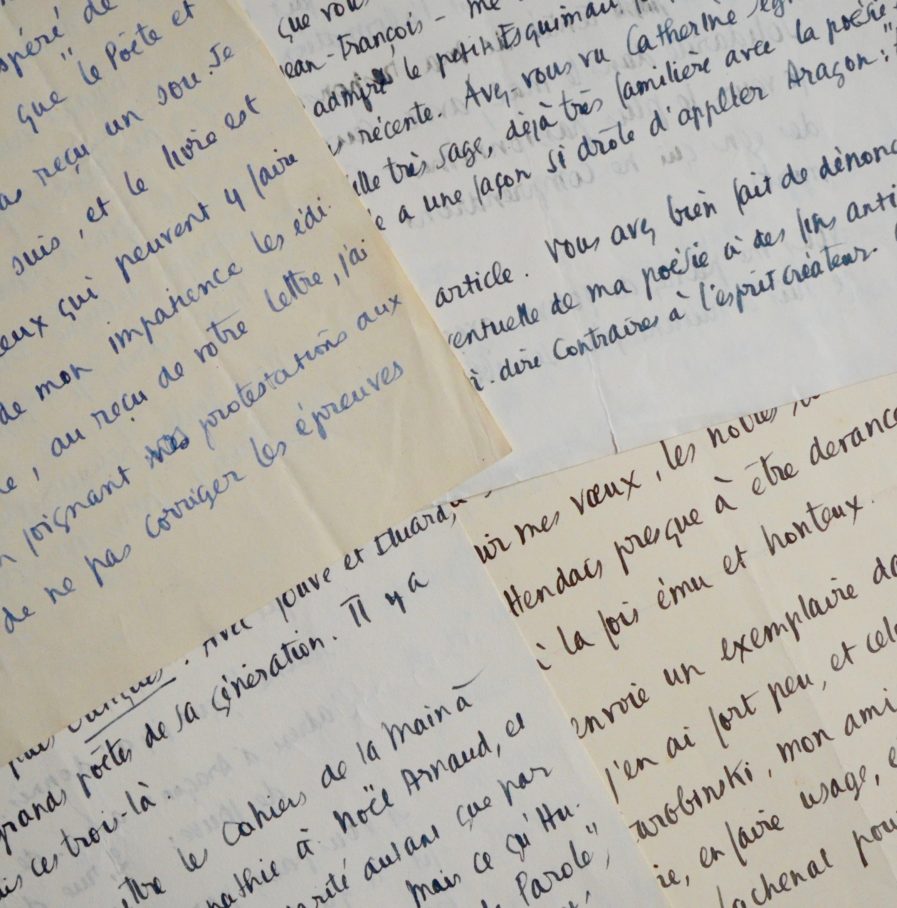 spéré de
que "le Poète et
as reçu un sou. Je
suis, et le livre est
eux qui peuvent y faire
de mon impatience les édi-
e, au reçu de votre lettre, j'ai
joignant mes protestations aux
de ne pas corriger les épreuves
que vous
Jean-François - me
admiré le petit Esquimau
récente. Avez-vous vu Catherine
ille très sage, déjà très familière avec la poésie
e a une façon si drôle d'appller Aragon : "
article. Vous avez bien fait de dénonc
ventuelle de ma poésie à des fins anti
i-dire contraires à l'esprit créateur.
Avec Jouve et Eluard,
grands poètes de sa génération. Il y a
is ces trois-là.
ttre le Cahiers de la Main à
pathie à Noël Arnaud, et
rité autant que par
Mais ce qu'Hu-
Parole",
ir mes vœux, les nôtres
Hendaç presque à être devancé
à la fois ému et honteux.
envoie un exemplaire da
j'en ai fort peu, et cel
arobinski, mon ami
ie, en faire usage, e
achenal pou